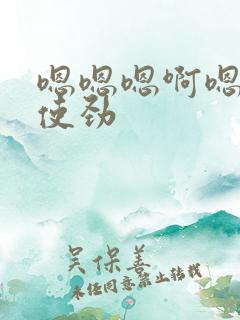 嗯嗯嗯啊嗯
使劲
吴保善
未经同意禁止转载